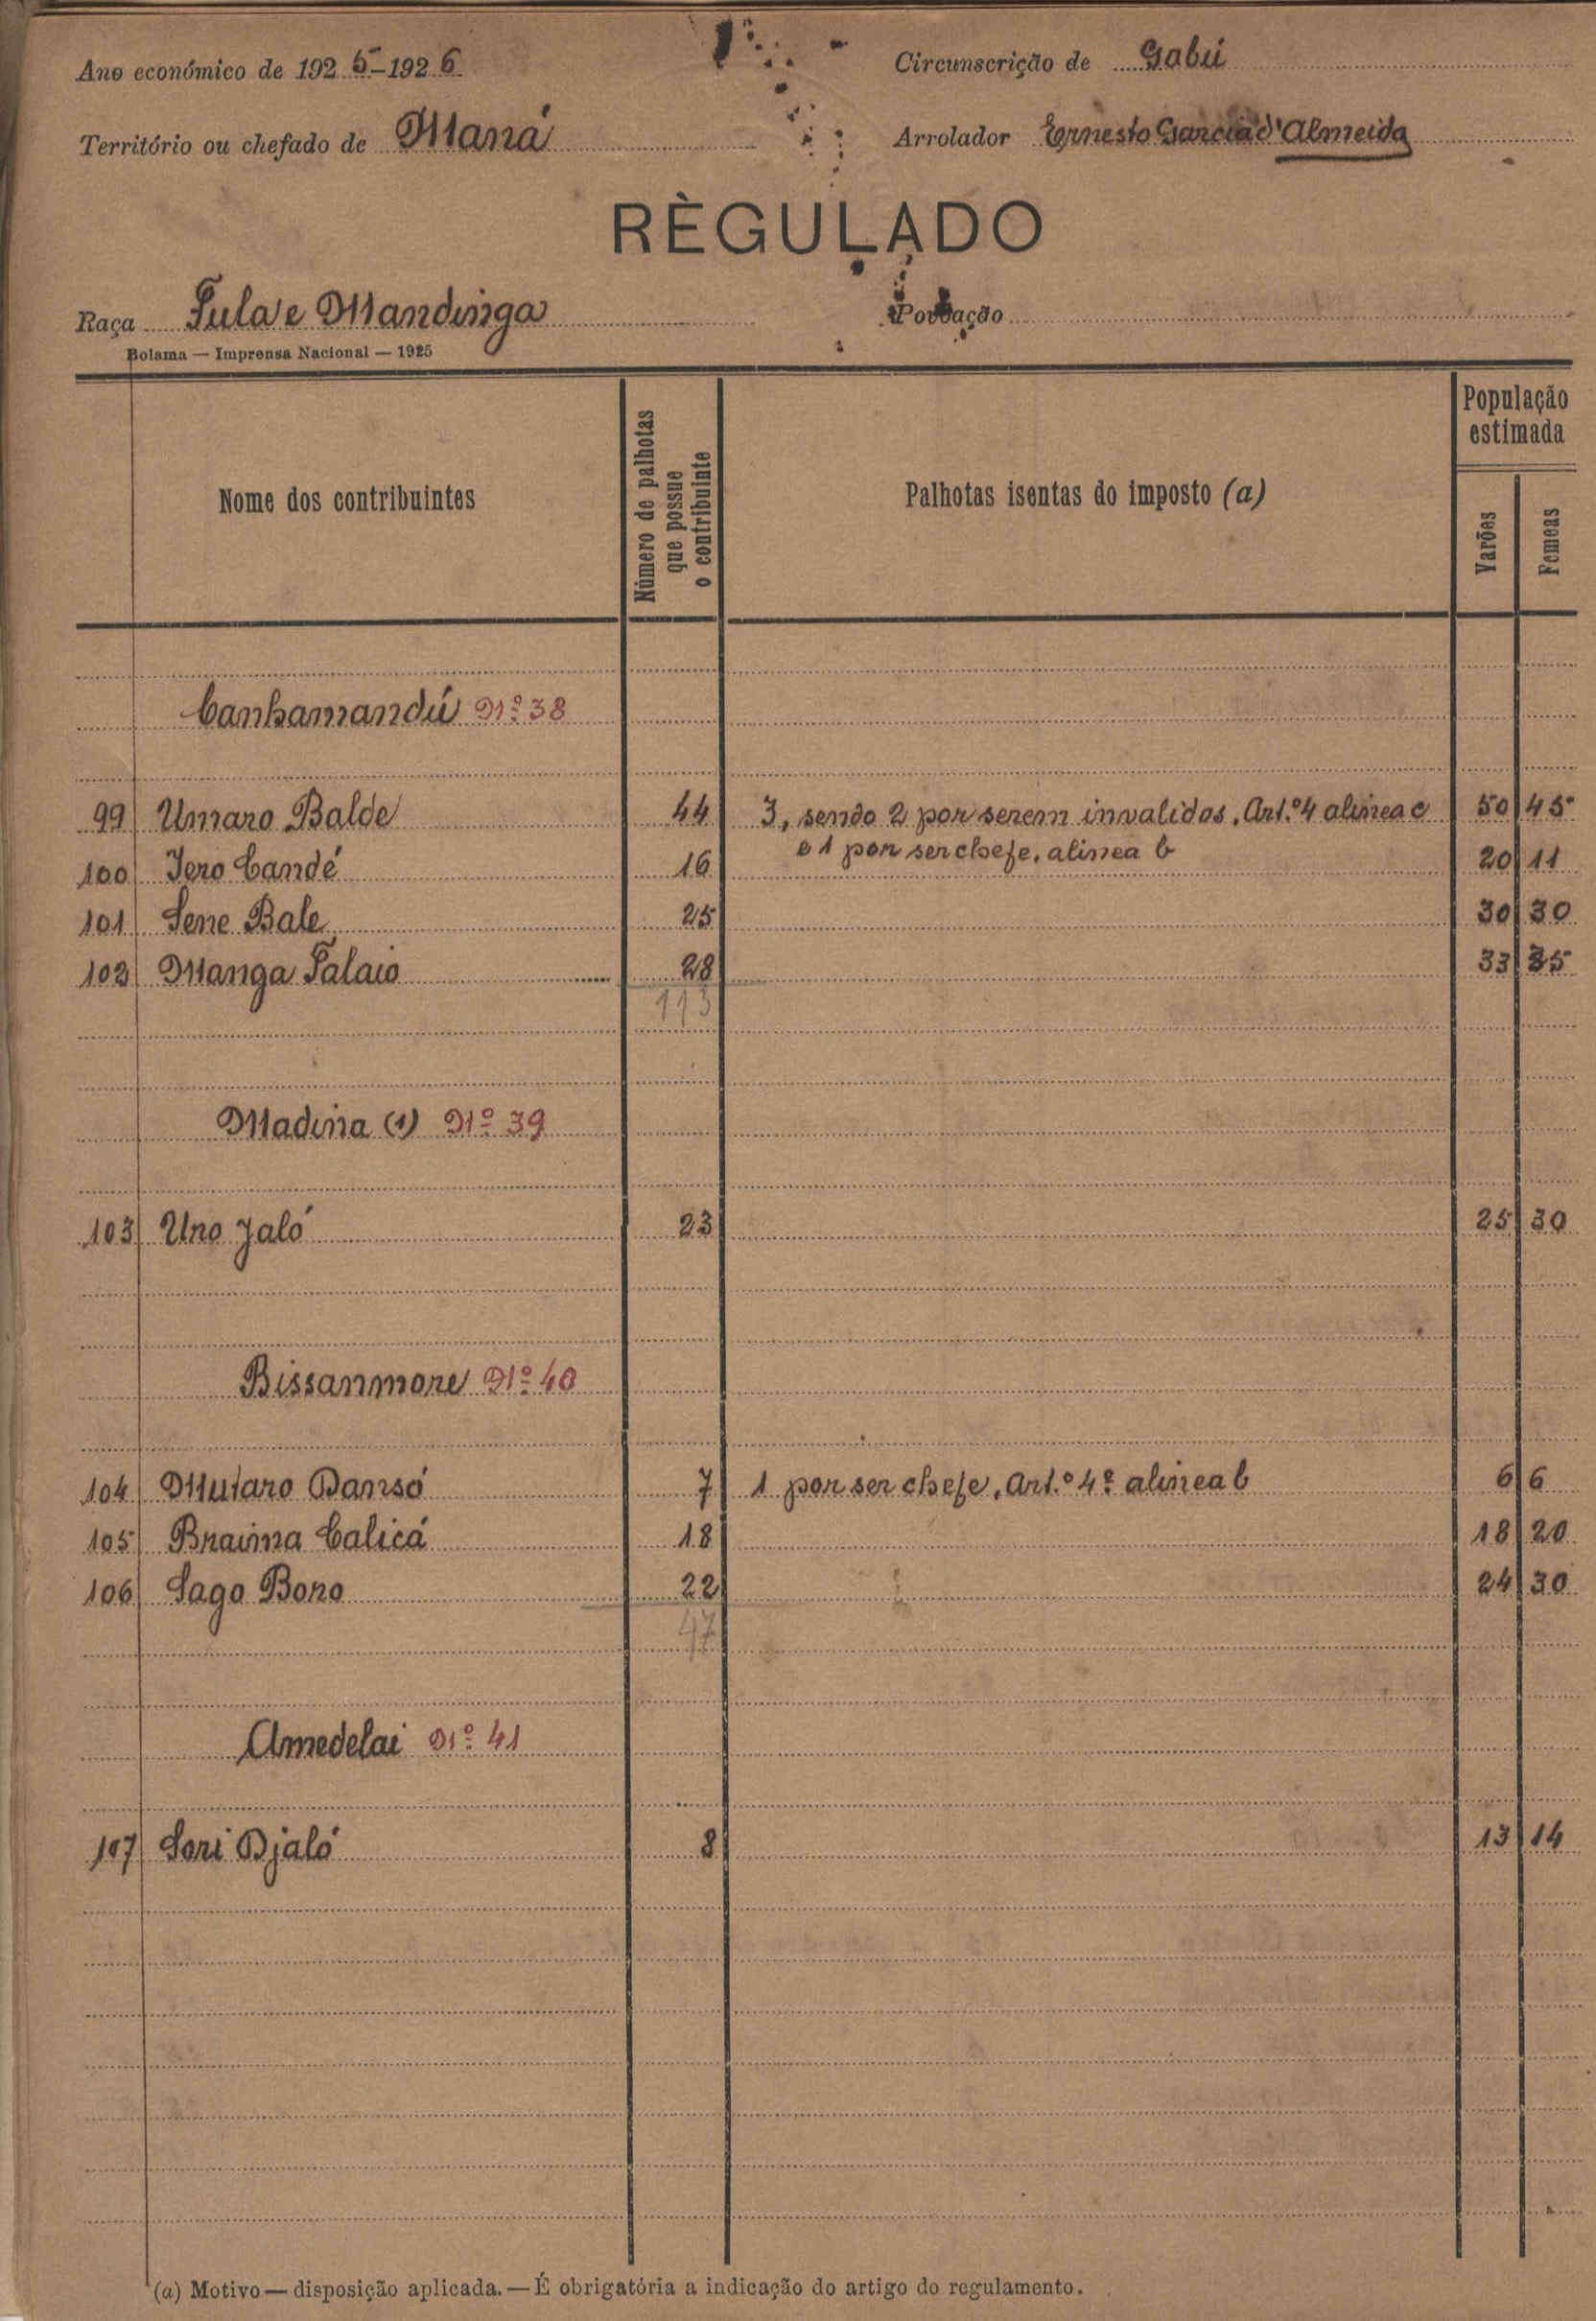 Ano económico de 1925-1926
Circunscrição de Gabú
Território ou chefado de Maná
Arrolador Ernesto Garcia d'Almeida
RÈGULADO
Raça Fula e Mandinga
Povoação
Bolama — Imprensa Nacional — 1925
Nome dos contribuintes
Número de palhotas que possue o contribuinte
Palhotas isentas do imposto (a)
População estimada
Varões
Femeas
Canhamandú Nº 38
99 Umaro Balde 44 3, sendo 2 por serem invalidos, Art.º 4 alinea c 50 45
e 1 por ser chefe, alinea b
100 Iero Candé 16 20 11
101 Sene Bale 25 30 30
102 Manga Falaio 28 33 35
113
Madina (1) Nº 39
103 Uno Jaló 23 25 30
Bissanmore Nº 40
104 Mutaro Dansó 7 1 por ser chefe, Art.º 4º alinea b 6 6
105 Braima Calicá 18 18 20
106 Sago Boro 22 24 30
47
Amedelai Nº 41
107 Sori Djaló 8 13 14
(a) Motivo — disposição aplicada. — É obrigatória a indicação do artigo do regulamento.